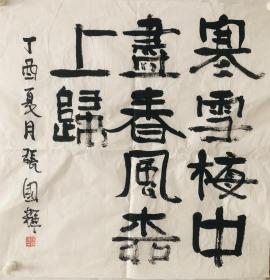 寒雪梅中
盡春風柳
上歸
丁酉夏月張國輝